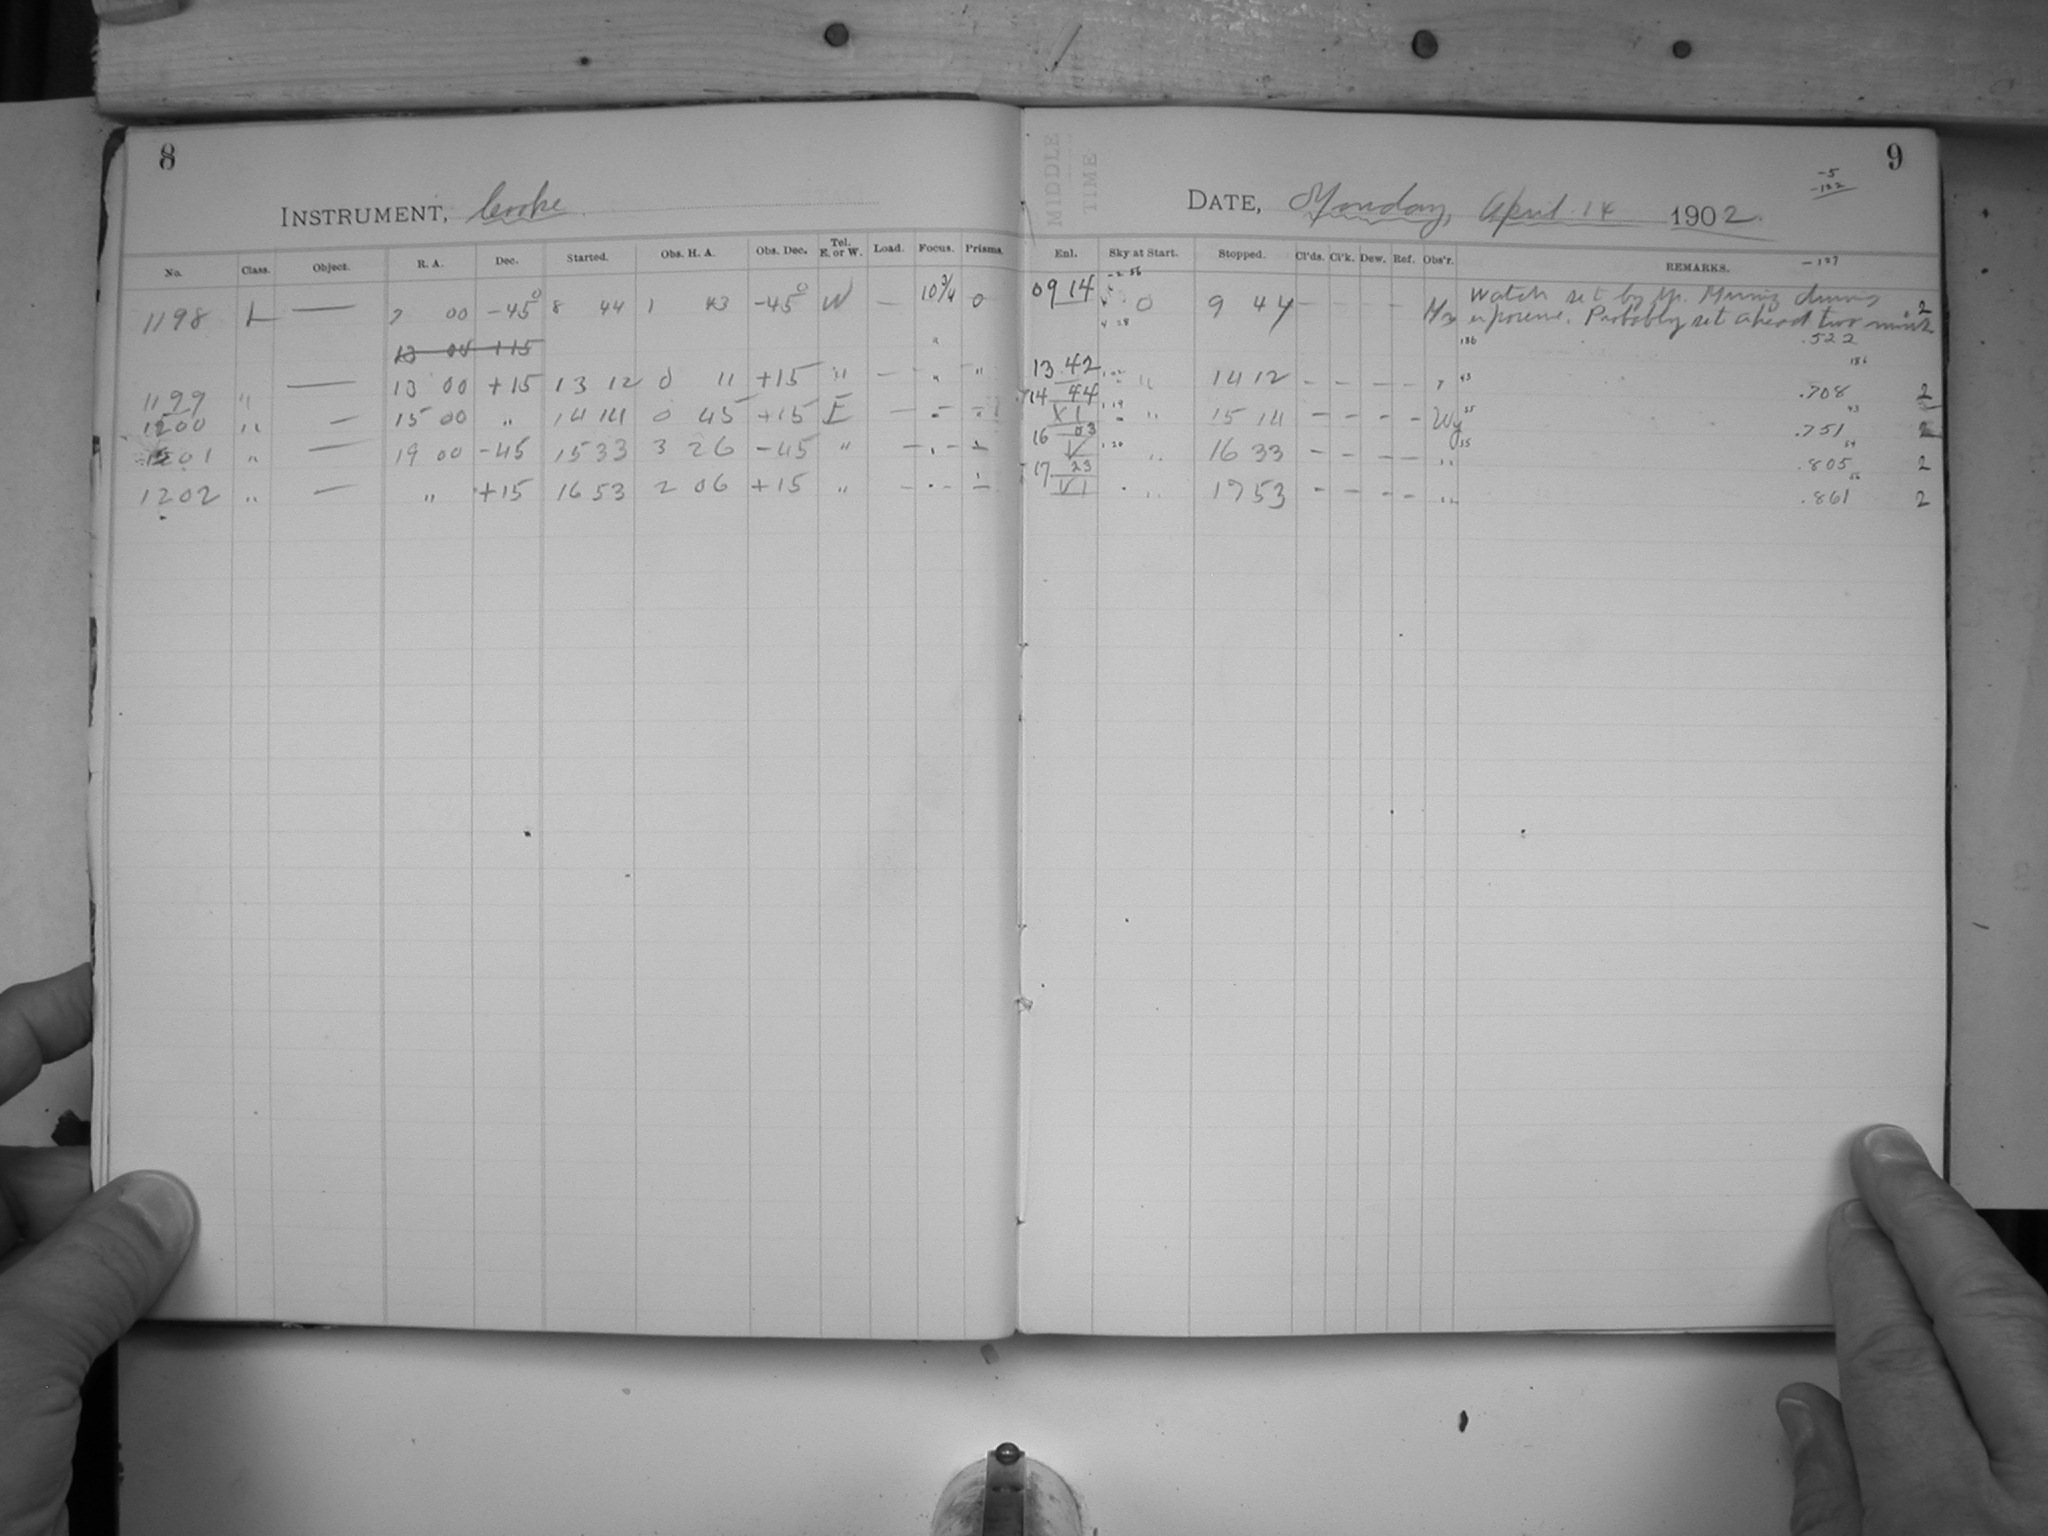 8
INSTRUMENT, Cooke
No. Class. Object. R. A. Dec. Started. Obs. H. A. Obs. Dec. Tel. E. or W. Load. Focus. Prisms.
1198 L — 7 00 -45° 8 44 1 43 -45° W — 10 3/4 0
13 04 +15 "
1199 " — 13 00 +15 13 12 0 11 +15 " — " "
1200 " — 15 00 " 14 14 0 45 +15 E — " "
1201 " — 19 00 -45 15 33 3 26 -45 " — " —
1202 " — " +15 16 53 2 06 +15 " — " —
9
MIDDLE
TIME
DATE, Monday, April 14 1902.
-5
-122
-127
Enl. Sky at Start. Stopped. Cl'ds. Cl'k. Dew. Ref. Obs'r. REMARKS.
09 14 -2 56 0 9 44 — — — — Watch set by Mr. during 2
4 28 exposure. Probably set ahead two .522
186
186
13 42 " 14 12 — — — — 43 .708 2
14 44 1 19 " 15 14 — — — — Wy 55 .751 43 2
X 1
16 03 1 20 " 16 33 — — — — " 55 .805 54 2
17 23 " 17 53 — — — — " .861 56 2